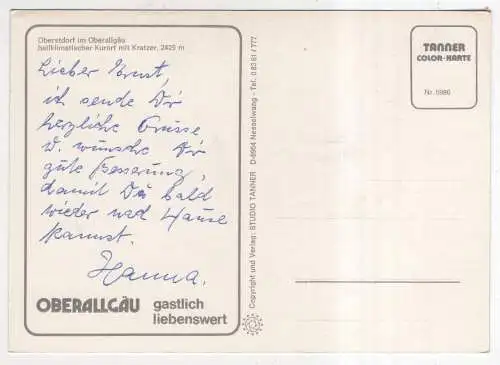 Oberstdorf im Oberallgäu
heilklimatischer Kurort mit Kratzer, 2425 m
Lieber Ernst,
ich sende Dir
herzliche Grüsse
u. wünsche Dir
gute Besserung,
damit Du bald
wieder nach Hause
kannst.
Hanna.
OBERALLGÄU
gastlich
liebenswert
Copyright und Verlag: STUDIO TANNER · D-8964 Nesselwang - Tel. 08361/777
TANNER
COLOR-KARTE
Nr. 5986